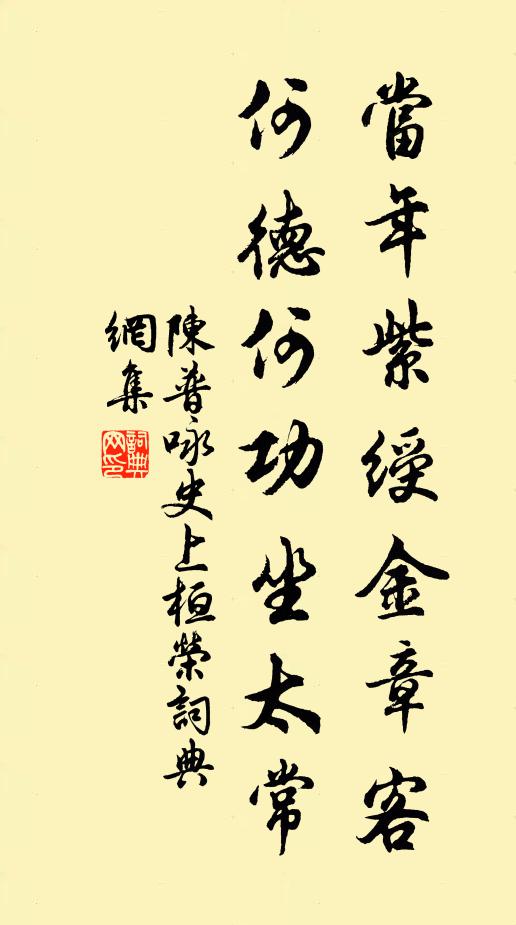 當年紫綬金章客
何德何功坐太常
陳普咏史上桓榮詞典
網集
詞典网印